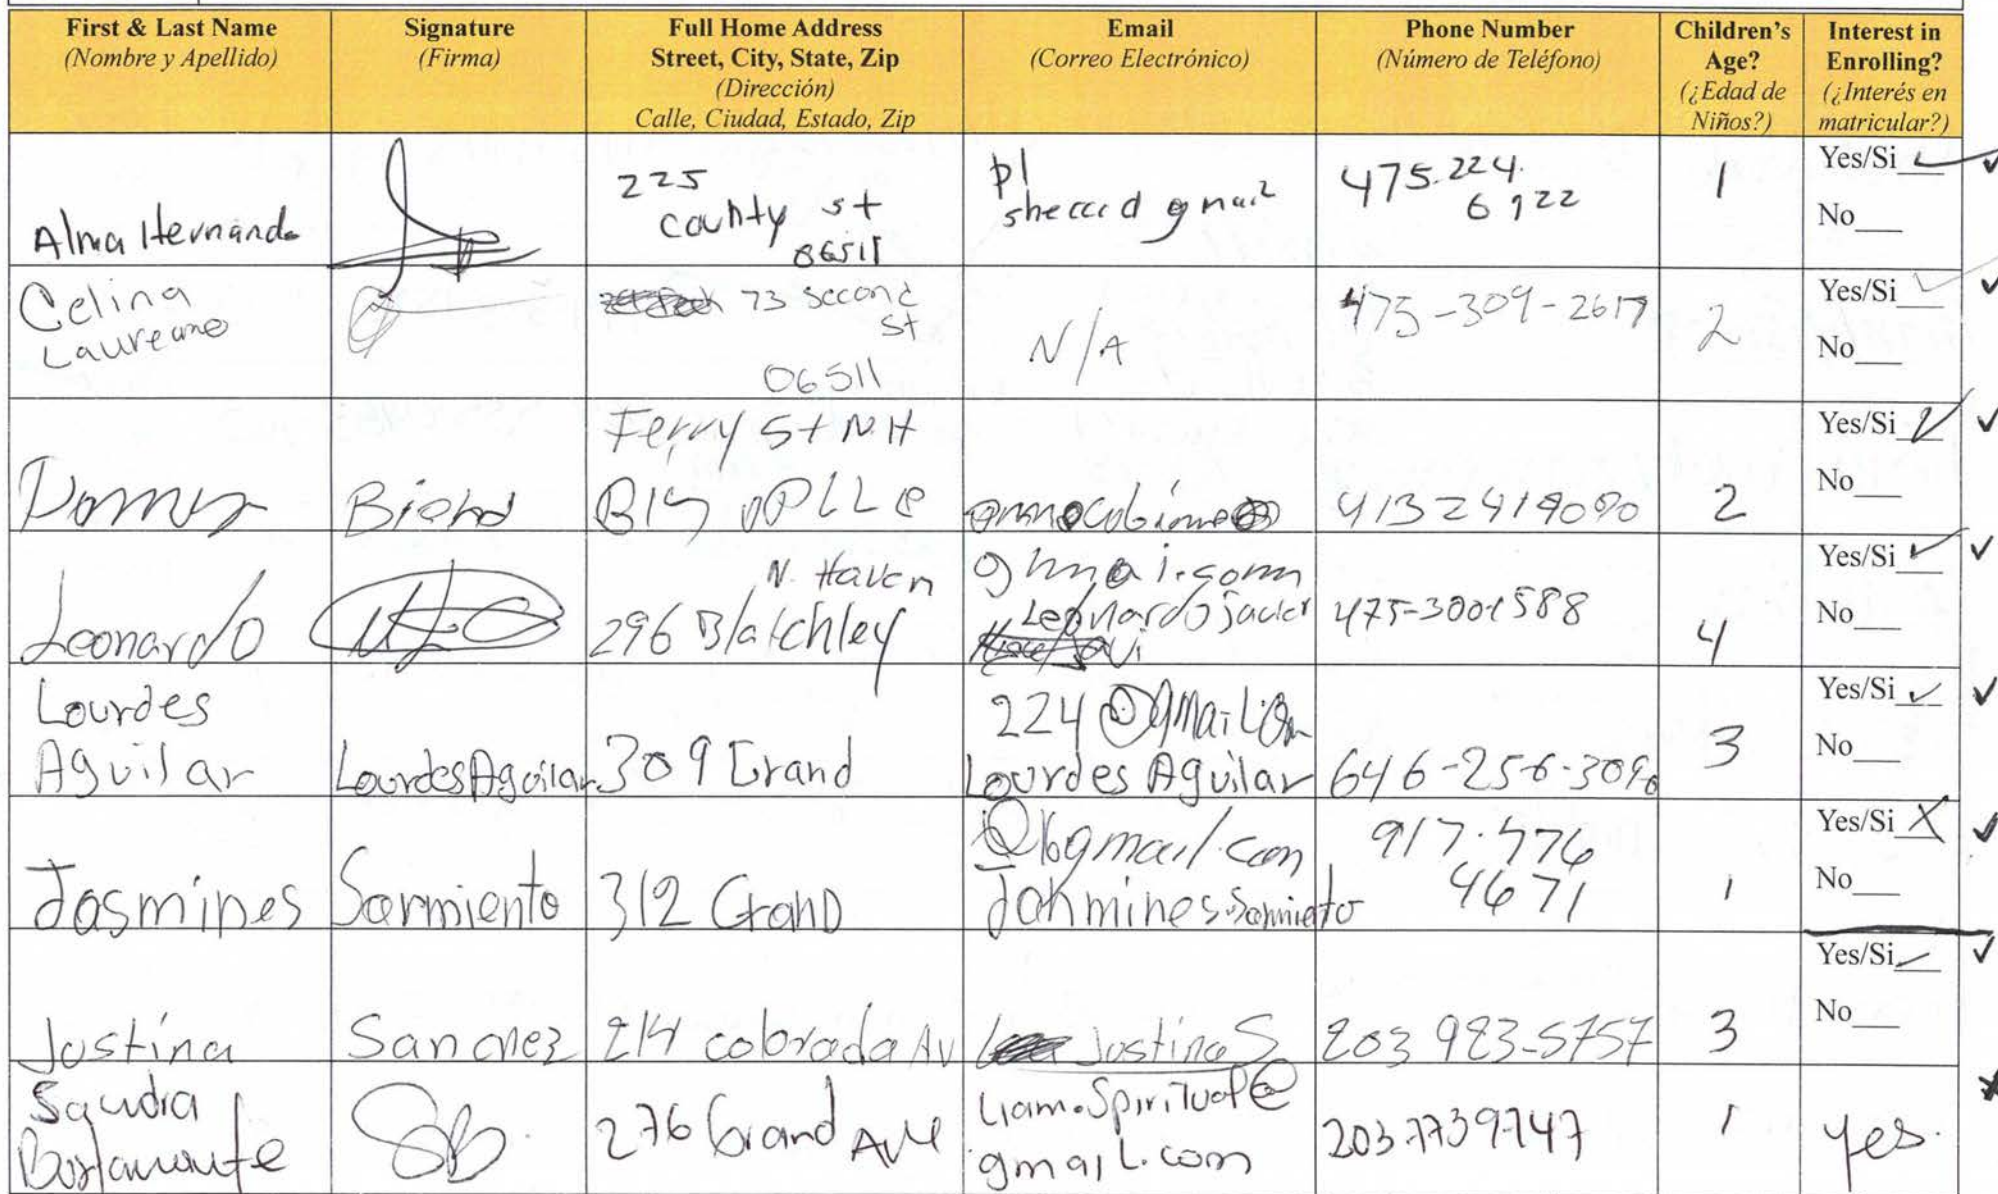 First & Last Name
(Nombre y Apellido)
Signature
(Firma)
Full Home Address
Street, City, State, Zip
(Dirección)
Calle, Ciudad, Estado, Zip
Email
(Correo Electrónico)
Phone Number
(Número de Teléfono)
Children's
Age?
(¿Edad de
Niños?)
Interest in
Enrolling?
(¿Interés en
matricular?)
Alma Hernande
225
county st
06511
475.224.
6922
1
Yes/Si
No
Celina
Laureano
73 Second
St
06511
N/A
475-309-2617
2
Yes/Si
No
Ferry St N.H
4132419090
2
Yes/Si
No
Leonardo
N. Haven
296 Blatchley
Leonardo javier
475-3001588
4
Yes/Si
No
Lourdes
Aguilar
Lourdes Aguilar
309 Grand
224@gmail.com
Lourdes Aguilar
646-256-3090
3
Yes/Si
No
Jasmines
Sarmiento
312 Grand
gmail.com
917.576
4671
1
Yes/Si X
No
Justina
Sanchez
214 colorado Av
Justina S
203 983-5757
3
Yes/Si
No
Sandra
Bustamante
SB
276 Grand Ave
Liam.Spiritual@
gmail.com
203 7739747
1
yes.